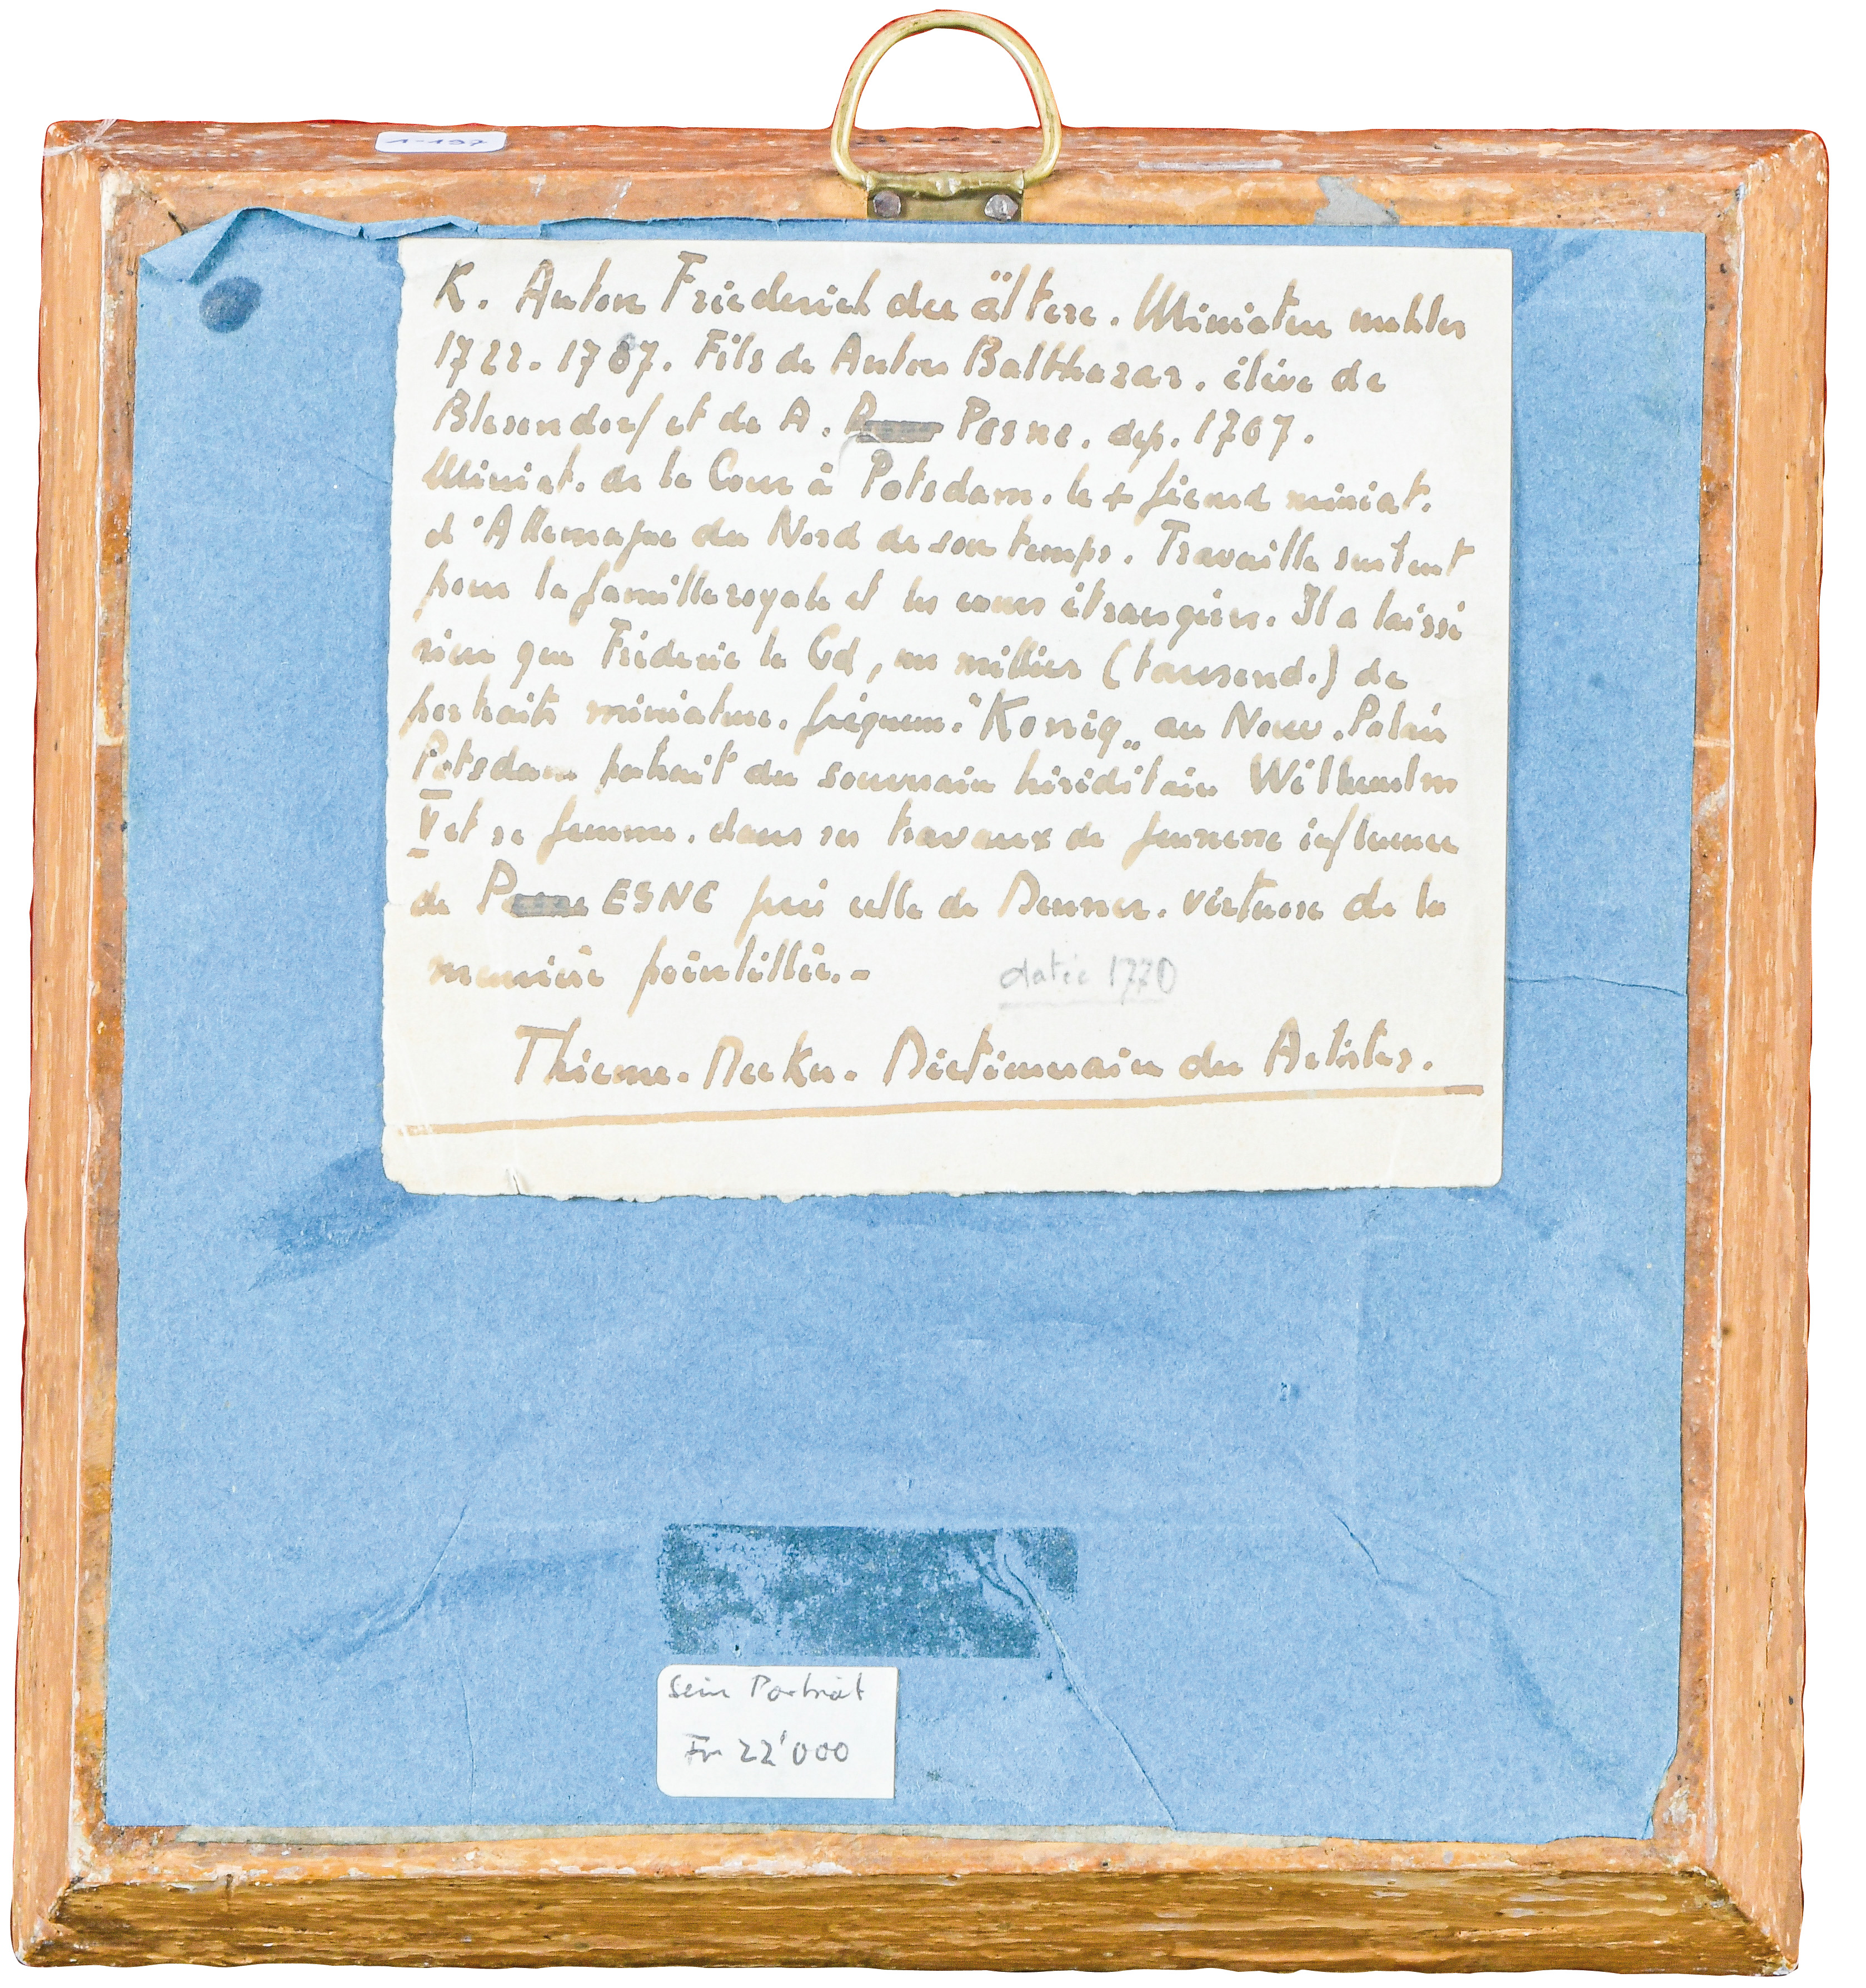 1-197
K. Anton Friederich der ältere. Miniaturmahler
1722-1787. Fils de Anton Balthazar. élève de
Blesendorf et de A. Pesne. dep. 1767.
Miniat. de la Cour à Potsdam. le + grand miniat.
d'Allemagne du Nord de son temps. Travaille surtout
pour la famille royale et les cours étrangères. Il a laissé
rien que Fréderic le Gd, un millier (tausend.) de
portraits miniature. fréquem. "König" au Nouv. Palais
Potsdam portrait du souverain héréditaire Wilhemlm
V et sa femme. dans ses travaux de jeunesse influence
de P ESNE puis celle de Denner. virtuose de la
manière pointillée.-
datée 1770
Thieme. Becker. Dictionnaire des Artistes.
Sein Porträt
Fr 22'000